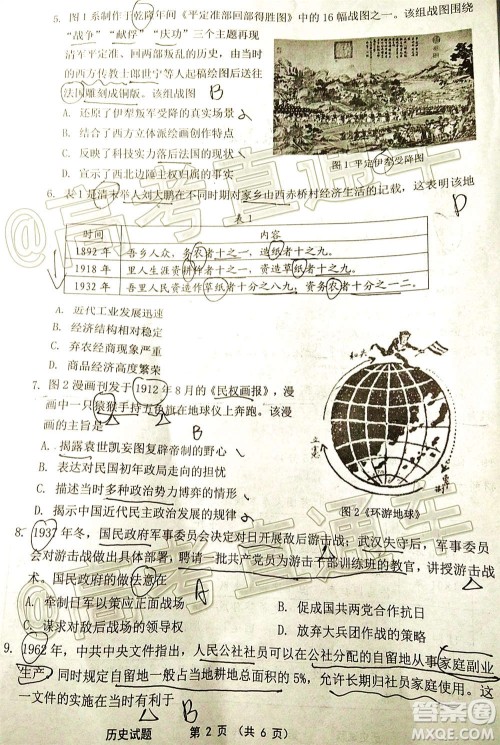 5. 图1系制作于乾隆年间《平定准部回部得胜图》中的16幅战图之一。该组战图围绕
“战争”“献俘”“庆功”三个主题再现
清军平定准、回部叛乱的历史，由当时
的西方传教士郎世宁等人起稿绘图后送往
法国雕刻成铜版。该组战图
B
A. 还原了伊犁叛军受降的真实场景
B. 结合了西方立体绘画创作特点
C. 反映了实力强大后法国的现状
D. 宣示了西北边陲主权归属的事实
图1 平定伊犁受降图
6. 表1是清末举人刘大鹏在不同时期对家乡山西赤桥村经济生活的记载，这表明该地
D
表1
时间 内容
1892年 吾乡人众，务农者十之一，造纸者十之九。
1918年 里人生涯资耕种者十之一，资造草纸者十之九。
1932年 吾里人民资造作草纸者十分之八九，资务农者十分之一二。
A. 近代工业发展迅速
B. 经济结构相对稳定
C. 弃农经商现象严重
D. 商品经济高度繁荣
7. 图2漫画刊发于1912年8月的《民权画报》，漫
画中一只猿猴手持五色旗在地球仪上奔跑。该漫
画的主旨是
B
A. 揭露袁世凯妄图复辟帝制的野心
B. 表达对民国初年政局走向的担忧
C. 描述当时多种政治势力博弈的情形
D. 揭示中国近代民主政治发展的规律
共和
立宪
图2《环游地球》
8. 1937年冬，国民政府军事委员会决定对日开展敌后游击战；武汉失守后，军事委员
会对游击战做出具体部署，聘请一批共产党员为游击干部训练班的教官，讲授游击战
术。国民政府的做法意在
A
A. 牵制日军以策应正面战场
B. 促成国共两党合作抗日
C. 谋求对敌后战场的领导权
D. 放弃大兵团作战方式
9. 1962年，中共中央文件指出，人民公社社员可以在公社分配的自留地从事家庭副业
生产，同时规定自留地一般占当地耕地总面积的5%，允许长期归社员家庭使用。这一
文件的实施在当时有利于
B
历史试题 第2页（共6页）
@高考直通车
答案圈
MXQE.COM